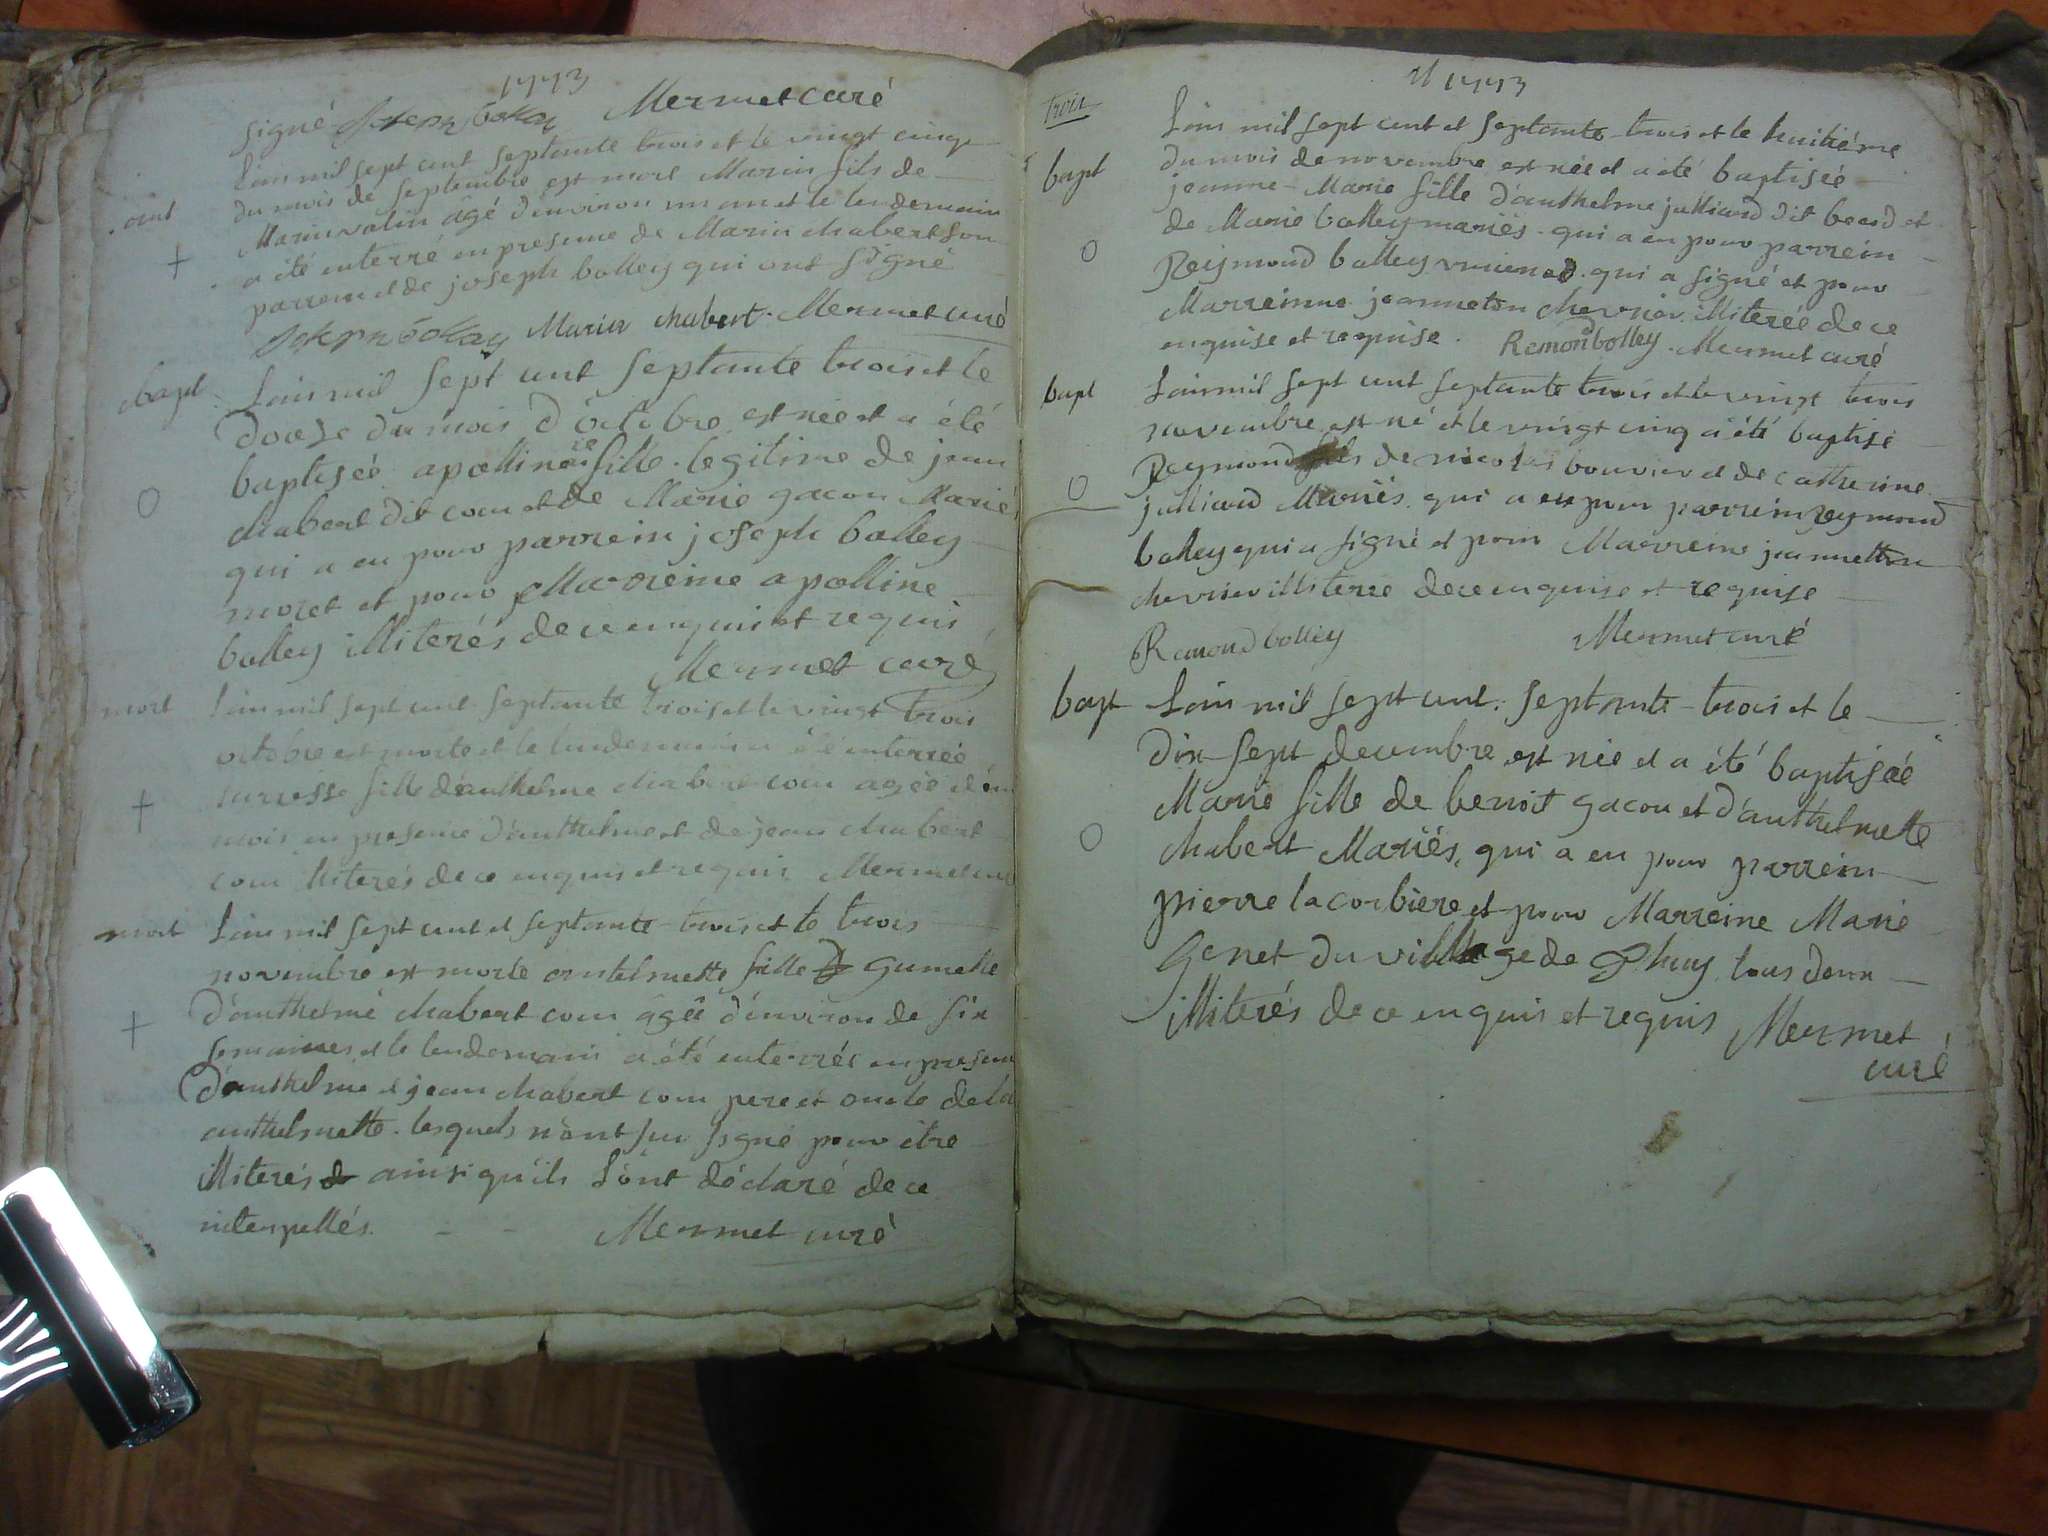 1773
signé Joseph bolley Mermet curé
L'an mil sept cent septante trois et le vingt cinq
du mois de septembre est mort Marin fils de
Marin valin âgé d'environ un an et le lendemain
a été enterré en presence de Marin chabert son
parrein et de joseph bolley qui ont signé
Joseph bolley Marin chabert. Mermet curé
bapt L'an mil sept cent septante trois et le
douze du mois d'octobre est née et a été
baptisée apolline fille legitime de jean
chabert dit coeur et de Marie gacon Mariés
qui a eu pour parrein joseph bolley
moret et pour Marreine apolline
bolley illiterés de ce enquis et requis
Mermet curé
mort L'an mil sept cent septante trois et le vingt trois
octobre est morte et le lendemain a été enterrée
fille d'anthelme chabert coeur agée d'un
mois en presence d'anthelme et de jean chabert
coeur illiterés de ce enquis et requis Mermet curé
mort L'an mil sept cent et septante trois et le trois
novembre est morte antelmette fille gumelle
d'anthelme chabert coeur âgée d'environ de six
semaines et le lendemain a été enterrée en presence
d'anthelme et jean chabert coeur pere et oncle de la
anthelmette. lesquels n'ont su signé pour être
illiterés ainsi qu'ils l'ont déclaré de ce
interpellés. Mermet curé
1773
trois
L'an mil sept cent et septante trois et le huitième
bapt du mois de novembre est née et a été baptisée
jeanne Marie fille d'anthelme julliard dit beard et
de Marie bolley mariés. qui a eu pour parrein
Reymond bolley qui a signé et pour
Marreinne jeanneton chevrier illiterée de ce
enquise et requise. Remond bolley. Mermet curé
bapt L'an mil sept cent septante trois et le vingt trois
novembre est né et le vingt cinq a été baptisé
Reymond fils de nicolas bouvier et de catherine
julliard Mariés. qui a eu pour parrein reymond
bolley qui a signé et pour Marreine jeannetton
chevrier illiterée de ce enquise et requise
Remond bolley Mermet curé
bapt L'an mil sept cent. septante trois et le
dix sept decembre est née et a été baptisée
Marie fille de benoit gacon et d'anthelmette
chabert Mariés, qui a eu pour parrein
pierre lacorbiere et pour Marreine Marie
Genet du village de Phuy tous deux
illiterés de ce enquis et requis Mermet
curé